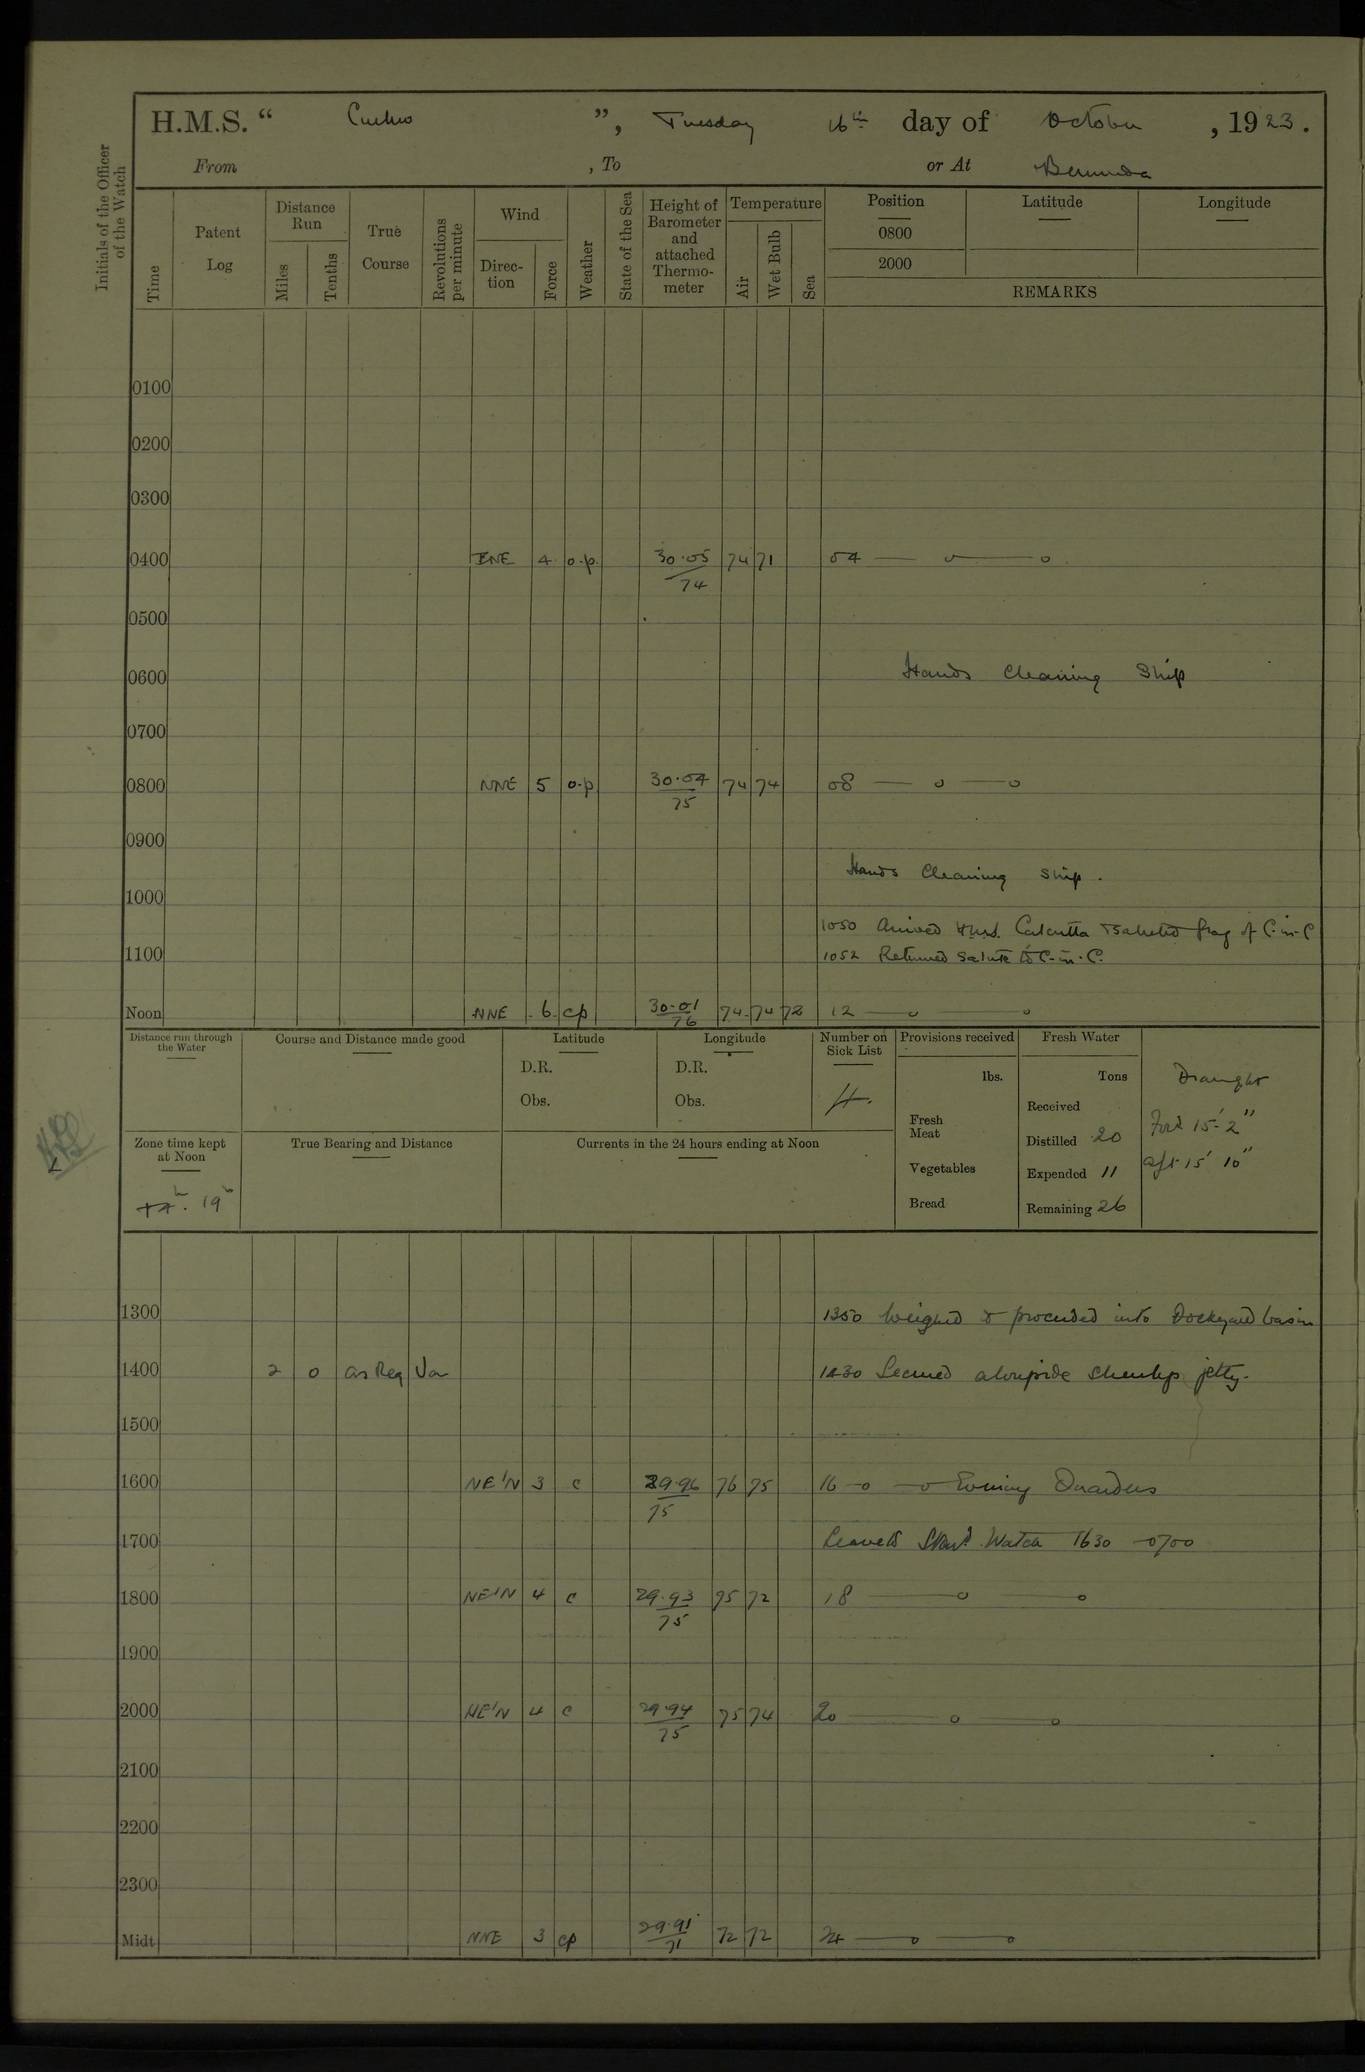 H.M.S. “ Curlew ”, Tuesday 16th day of October, 1923.
From , To or At Bermuda
Initials of the Officer of the Watch
Time
Patent Log
Distance Run
Miles
Tenths
True Course
Revolutions per minute
Wind
Direc-tion
Force
Weather
State of the Sea
Height of Barometer and attached Thermo-meter
Temperature
Air
Wet Bulb
Sea
Position
0800
2000
Latitude
Longitude
REMARKS
0100
0200
0300
0400 ENE 4 o.p. 30.05/74 74 71 04 — o — o
0500
0600 Hands Cleaning Ship
0700
0800 NNE 5 o.p 30.04/75 74 74 08 — o — o
0900
Hands Cleaning Ship.
1000
1050 Arrived H.M.S. Calcutta & saluted flag of C-in-C
1100 1052 Returned Salute to C-in-C.
Noon NNE 6 cp 30.01/76 74 74 72 12 — o — o
Distance run through the Water
Course and Distance made good
Latitude
D.R.
Obs.
Longitude
D.R.
Obs.
Number on Sick List
4.
Provisions received
lbs.
Fresh Meat
Vegetables
Bread
Fresh Water
Tons
Received
Distilled 20
Expended 11
Remaining 26
Draught
Ford 15' 2"
aft 15' 10"
Zone time kept at Noon
19h
True Bearing and Distance
Currents in the 24 hours ending at Noon
1300 1350 Weighed & proceeded into Dockyard basin
1400 2 0 as Req Var 1430 Secured alongside Sheerlegs jetty.
1500
1600 NE'N 3 c 29.96/75 76 75 16 — o — o Evening Quarters
1700 Leave to Starb. Watch 1630 – 0700
1800 NE'N 4 c 29.93/75 75 72 18 — o — o
1900
2000 NE'N 4 c 29.94/75 75 74 20 — o — o
2100
2200
2300
Midt NNE 3 cp 29.91/71 72 72 24 — o — o